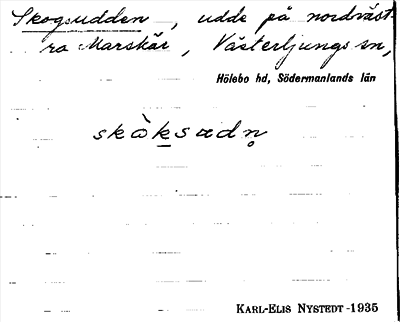 Skogsudden, udde på nordväst-
ra Marskär, Västerljungs sn,
Hölebo hd, Södermanlands län
skòksudn̥
KARL-ELIS NYSTEDT-1935